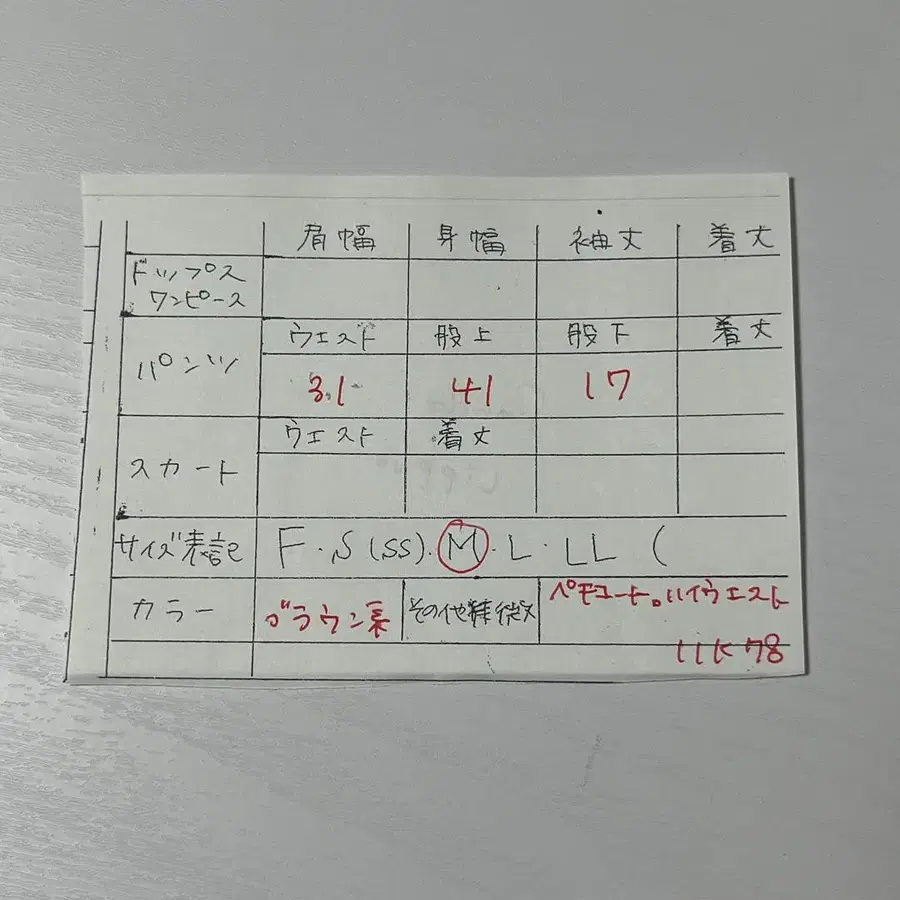 肩幅 身幅 袖丈 着丈
トップス
ワンピース
ウエスト 股上 股下 着丈
パンツ 31 41 17
ウエスト 着丈
スカート
サイズ表記 F・S(SS)・M・L・LL (
カラー ブラウン系 その他 ペチコート。ハイウエスト
11K78